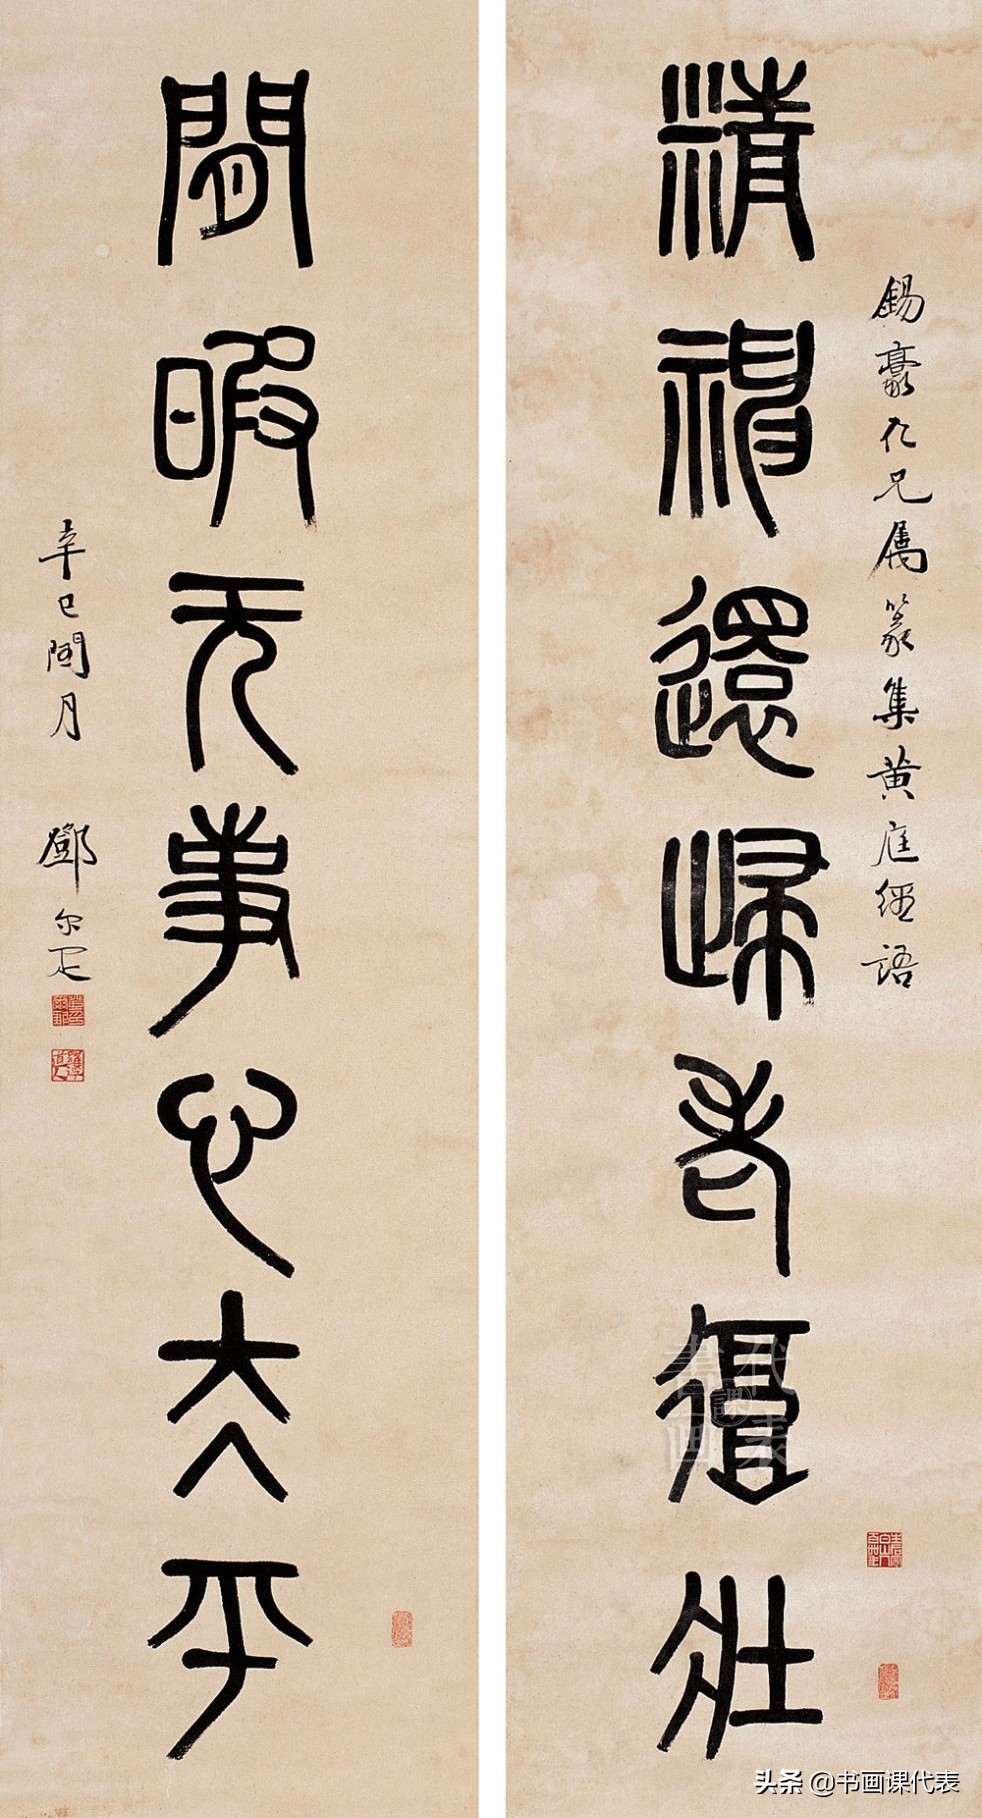 錫豪仁兄属篆集黄庭經語
精神還歸老復壯
閒暇无事心太平
辛巳閏月 鄧尔疋
書画課代表
头条 @书画课代表